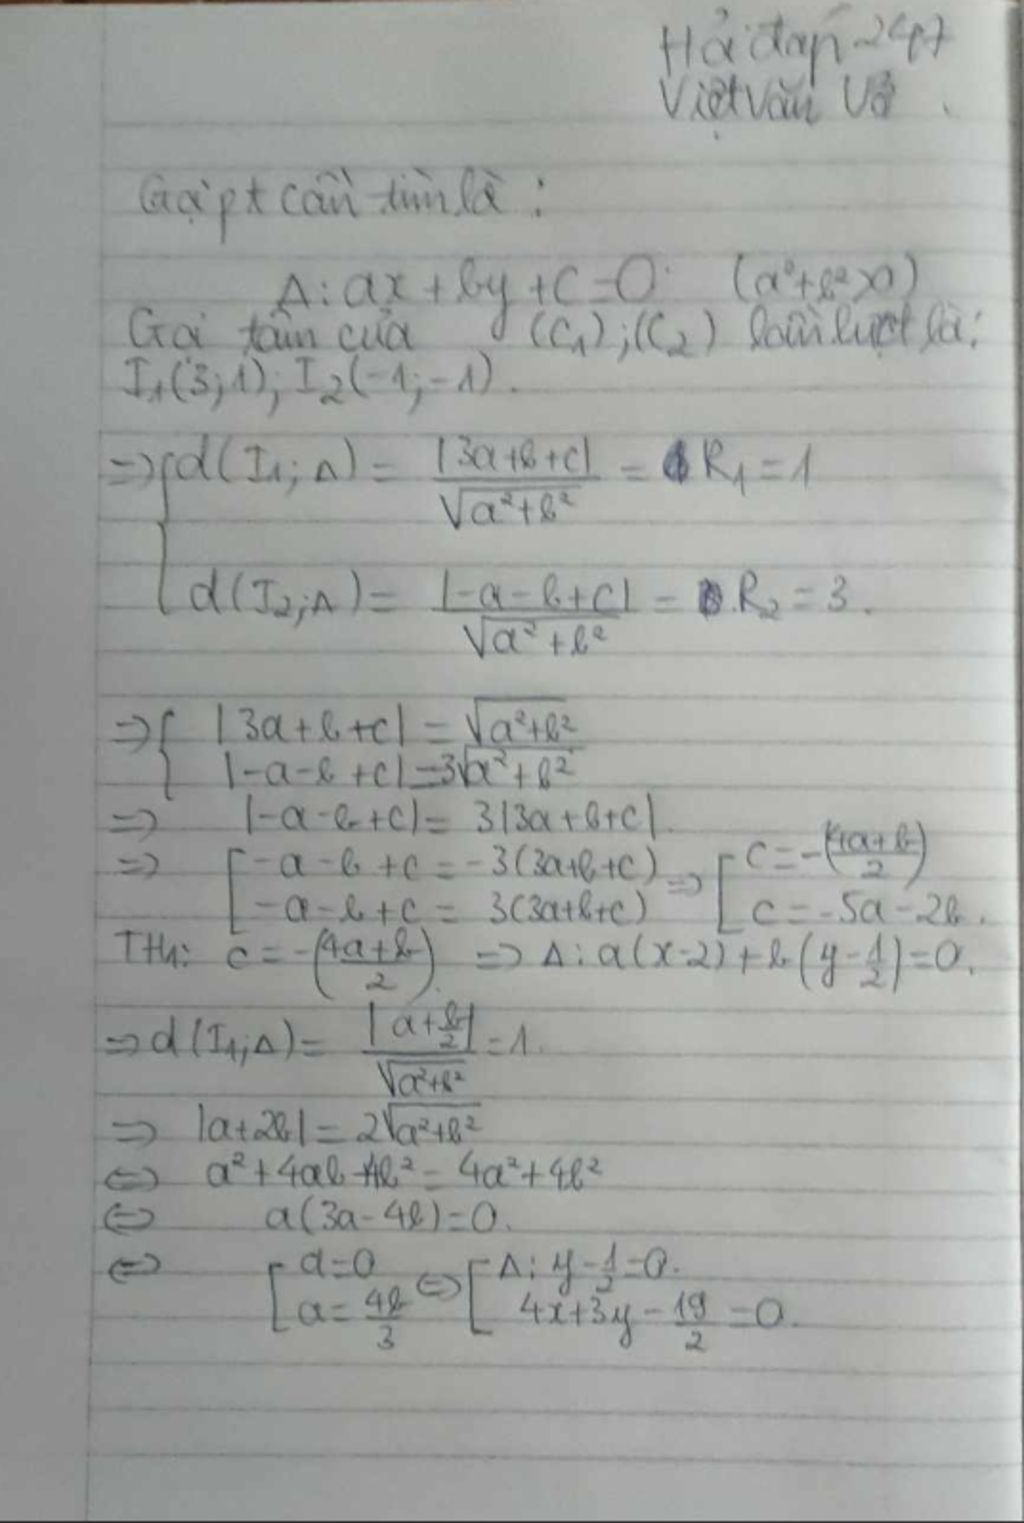 Hỏi đáp 247
Việt Văn Võ
Gọi pt cần tìm là :
Δ: ax + by + c = 0. (a²+b²>0)
Gọi tâm của (C₁);(C₂) lần lượt là:
I₁(3;1); I₂(-1;-1).
=> { d(I₁;Δ) = |3a+b+c| / √(a²+b²) = R₁ = 1
d(I₂;Δ) = |-a-b+c| / √(a²+b²) = R₂ = 3.
=> { |3a+b+c| = √(a²+b²)
|-a-b+c| = 3√(a²+b²)
=> |-a-b+c| = 3|3a+b+c|.
=> [ -a-b+c = -3(3a+b+c) => [ c = -(4a+b / 2)
-a-b+c = 3(3a+b+c) c = -5a-2b.
TH1: c = -(4a+b / 2). => Δ: a(x-2)+b(y-1/2)=0.
=> d(I₁;Δ) = |a+b/2| / √(a²+b²) = 1.
=> |a+2b| = 2√(a²+b²)
<=> a²+4ab+4b² = 4a²+4b²
<=> a(3a-4b)=0.
<=> [ a=0 <=> [ Δ: y-1/2=0.
a=4b/3 4x+3y-19/2=0.